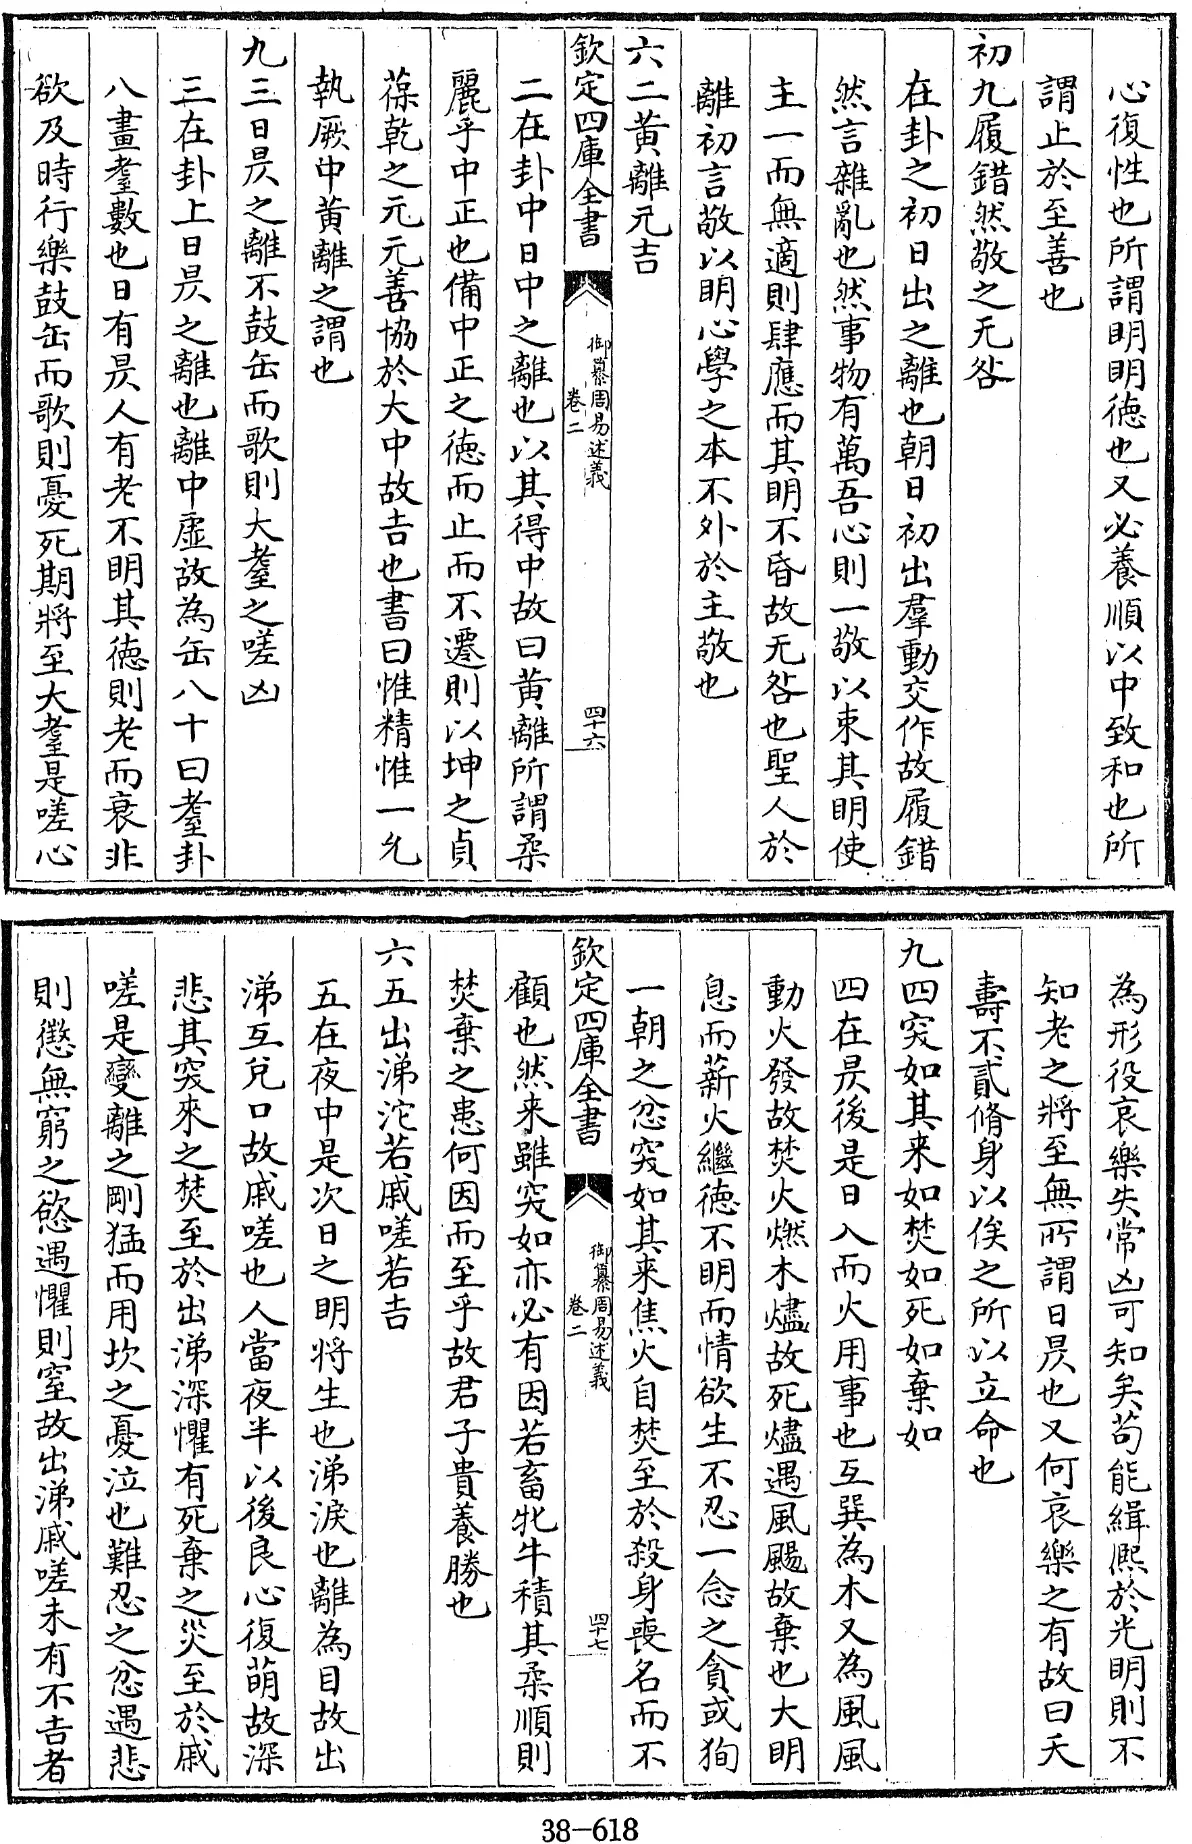 心復性也所謂明明徳也又必養順以中致和也所
謂止於至善也
初九履錯然敬之无咎
在卦之初日出之離也朝日初出羣動交作故履錯
然言雜亂也然事物有萬吾心則一敬以束其明使
主一而無適則肆應而其明不昏故无咎也聖人於
離初言敬以明心學之本不外於主敬也
六二黄離元吉
欽定四庫全書
御纂周易述義
卷二
四十六
二在卦中日中之離也以其得中故曰黄離所謂柔
麗乎中正也備中正之徳而止而不遷則以坤之貞
葆乾之元元善協於大中故吉也書曰惟精惟一允
執厥中黄離之謂也
九三日昃之離不鼓缶而歌則大耋之嗟凶
三在卦上日昃之離也離中虛故為缶八十曰耋卦
八畫耋數也日有昃人有老不明其徳則老而衰非
欲及時行樂鼓缶而歌則憂死期將至大耋是嗟心
為形役哀樂失常凶可知矣茍能緝熈於光明則不
知老之將至無所謂日昃也又何哀樂之有故曰夭
壽不貳脩身以俟之所以立命也
九四突如其来如焚如死如棄如
四在昃後是日入而火用事也互巽為木又為風風
動火發故焚火燃木燼故死燼遇風颺故棄也大明
息而薪火繼徳不明而情欲生不忍一念之貪或狥
一朝之忿突如其来焦火自焚至於殺身喪名而不
欽定四庫全書
御纂周易述義
卷二
四十七
顧也然来雖突如亦必有因若畜牝牛積其柔順則
焚棄之患何因而至乎故君子貴養勝也
六五出涕沱若戚嗟若吉
五在夜中是次日之明将生也涕淚也離為目故出
涕互兌口故戚嗟也人當夜半以後良心復萌故深
悲其突來之焚至於出涕深懼有死棄之災至於戚
嗟是變離之剛猛而用坎之憂泣也難忍之忿遇悲
則懲無窮之慾遇懼則窒故出涕戚嗟未有不吉者
38-618